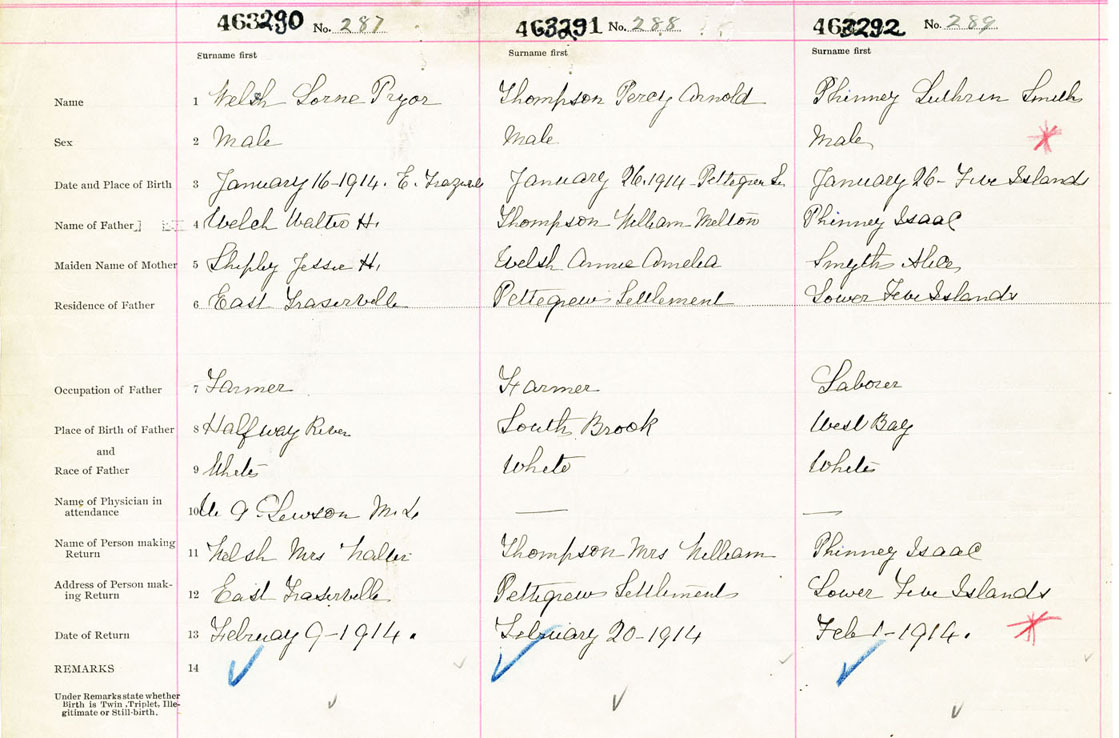 463290 No. 287 463291 No. 288 463292 No. 289
Surname first Surname first Surname first
Name 1 Welsh Lorne Pryor Thompson Percy Arnold Phinney Smith
Sex 2 Male Male Male
Date and Place of Birth 3 January 16-1914. E. January 26.1914-Pettegrew January 26- Five Islands
Name of Father 4 Welch Walter H. Thompson William Melton Phinney Isaac
Maiden Name of Mother 5 Shipley Jessie H. Welsh Annie Amelia Smyth Alice
Residence of Father 6 East Fraserville Pettegrew Settlement Lower Five Islands
Occupation of Father 7 Farmer Farmer Laborer
Place of Birth of Father 8 Halfway River South Brook West Bay
and
Race of Father 9 White White White
Name of Physician in
attendance 10 M.D. — —
Name of Person making
Return 11 Welsh Mrs Walter Thompson Mrs William Phinney Isaac
Address of Person mak-
ing Return 12 East Fraserville Pettegrew Settlement Lower Five Islands
Date of Return 13 February 9-1914. February 20-1914 Feb 1-1914.
REMARKS 14
Under Remarks state whether
Birth is Twin, Triplet, Ille-
gitimate or Still-birth.